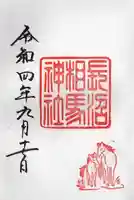 長沼
相馬
神社
令和四年九月十一日